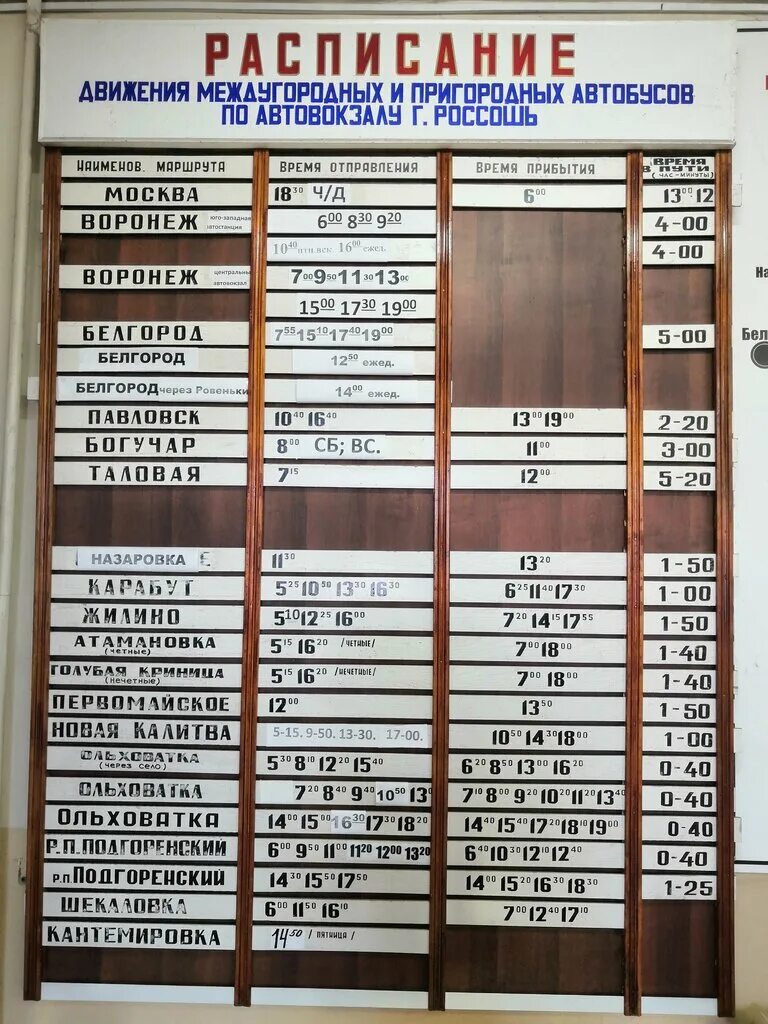 РАСПИСАНИЕ
ДВИЖЕНИЯ МЕЖДУГОРОДНЫХ И ПРИГОРОДНЫХ АВТОБУСОВ
ПО АВТОВОКЗАЛУ Г. РОССОШЬ
НАИМЕНОВ. МАРШРУТА ВРЕМЯ ОТПРАВЛЕНИЯ ВРЕМЯ ПРИБЫТИЯ ВРЕМЯ В ПУТИ (ЧАС-МИНУТЫ)
МОСКВА 18³⁰ Ч/Д 6⁰⁰ 13⁰⁰ 12
ВОРОНЕЖ юго-западная автостанция 6⁰⁰ 8³⁰ 9²⁰ 4-00
10⁴⁰ птн.вск. 16⁰⁰ ежед. 4-00
ВОРОНЕЖ центральный автовокзал 7⁰⁰ 9⁵⁰ 11³⁰ 13⁰⁰
15⁰⁰ 17³⁰ 19⁰⁰
БЕЛГОРОД 7⁵⁵ 15¹⁰ 17⁴⁰ 19⁰⁰ 5-00
БЕЛГОРОД 12⁵⁰ ежед.
БЕЛГОРОД через Ровеньки 14⁰⁰ ежед.
ПАВЛОВСК 10⁴⁰ 16⁴⁰ 13⁰⁰ 19⁰⁰ 2-20
БОГУЧАР 8⁰⁰ СБ; ВС. 11⁰⁰ 3-00
ТАЛОВАЯ 7¹⁵ 12⁰⁰ 5-20
НАЗАРОВКА 11³⁰ 13²⁰ 1-50
КАРАБУТ 5²⁵ 10⁵⁰ 13³⁰ 16³⁰ 6²⁵ 11⁴⁰ 17³⁰ 1-00
ЖИЛИНО 5¹⁰ 12²⁵ 16⁰⁰ 7²⁰ 14¹⁵ 17⁵⁵ 1-50
АТАМАНОВКА (четные) 5¹⁵ 16²⁰ /ЧЕТНЫЕ/ 7⁰⁰ 18⁰⁰ 1-40
ГОЛУБАЯ КРИНИЦА (Нечетные) 5¹⁵ 16²⁰ /НЕЧЕТНЫЕ/ 7⁰⁰ 18⁰⁰ 1-40
ПЕРВОМАЙСКОЕ 12⁰⁰ 13⁵⁰ 1-50
НОВАЯ КАЛИТВА 5-15. 9-50. 13-30. 17-00. 10⁵⁰ 14³⁰ 18⁰⁰ 1-00
ОЛЬХОВАТКА (через село) 5³⁰ 8¹⁰ 12²⁰ 15⁴⁰ 6²⁰ 8⁵⁰ 13⁰⁰ 16²⁰ 0-40
ОЛЬХОВАТКА 7²⁰ 8⁴⁰ 9⁴⁰ 10⁵⁰ 13⁰ 7¹⁰ 8⁰⁰ 9²⁰ 10²⁰ 11²⁰ 13⁴⁰ 0-40
ОЛЬХОВАТКА 14⁰⁰ 15⁰⁰ 16³⁰ 17³⁰ 18²⁰ 14⁴⁰ 15⁴⁰ 17²⁰ 18¹⁰ 19⁰⁰ 0-40
Р.П.ПОДГОРЕНСКИЙ 6⁰⁰ 9⁵⁰ 11⁰⁰ 11²⁰ 12⁰⁰ 13²⁰ 6⁴⁰ 10³⁰ 12¹⁰ 12⁴⁰ 0-40
Р.П ПОДГОРЕНСКИЙ 14³⁰ 15⁵⁰ 17⁵⁰ 14⁰⁰ 15²⁰ 16³⁰ 18³⁰ 1-25
ШЕКАЛОВКА 6⁰⁰ 11⁵⁰ 16¹⁰ 7⁰⁰ 12⁴⁰ 17¹⁰
КАНТЕМИРОВКА 14⁵⁰ /ПЯТНИЦА/
На
Бел